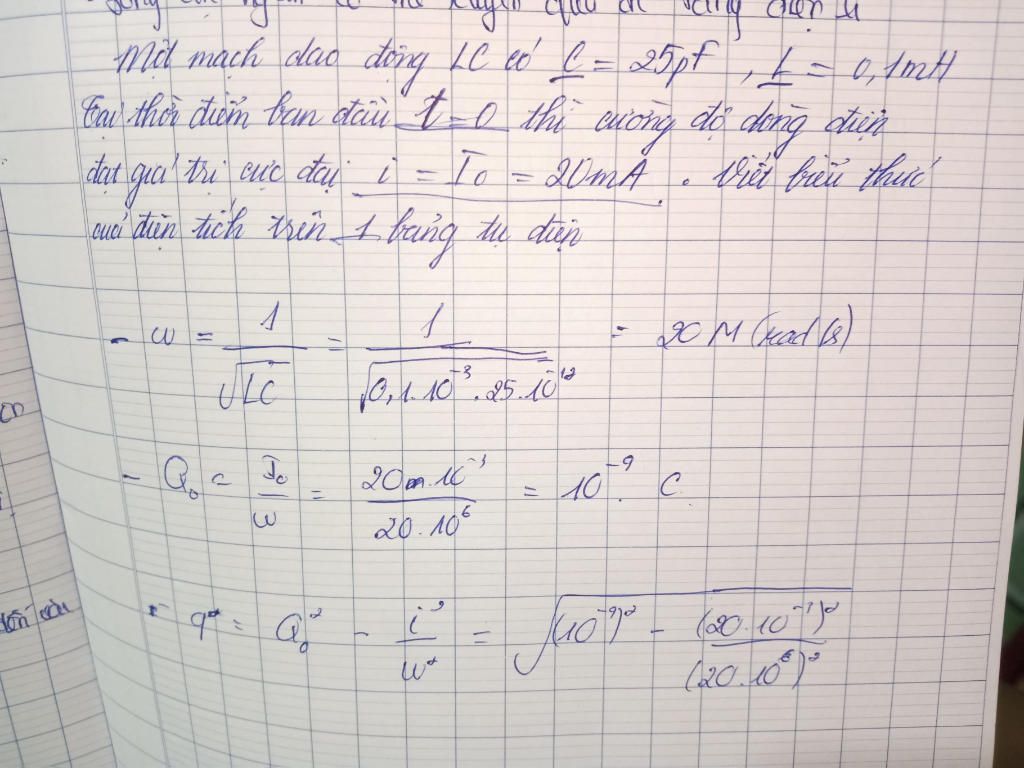 sóng cực ngắn có thể xuyên qua
Một mạch dao động LC có C = 25pf, L = 0,1mH
Tại thời điểm ban đầu t = 0 thì cường độ dòng điện
đạt giá trị cực đại i = I₀ = 20mA. Viết biểu thức
của điện tích trên 1 bảng tụ điện
- w = 1/√LC = 1/√0,1.10⁻³.25.10⁻¹² = 20 M (rad/s)
- Q₀ = I₀/w = 20.10⁻³/20.10⁶ = 10⁻⁹. C
- q² = Q₀² - i²/w² = √(10⁻⁹)² - (20.10⁻³)²/(20.10⁶)²